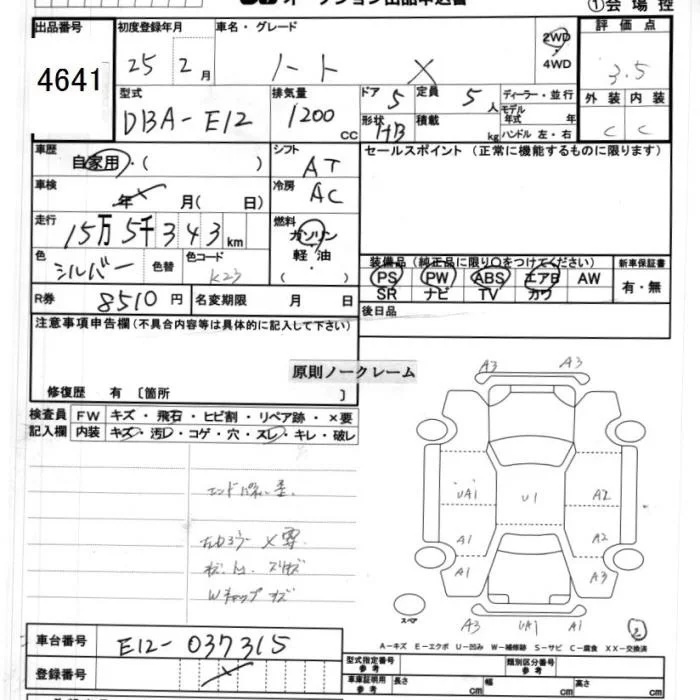 オークション出品申込書
①会場控
出品番号 4641
初度登録年月 25 2月
車名・グレード ノート X
2WD・4WD
評価点 3.5
外装 C 内装 C
型式 DBA-E12
排気量 1200 cc
ドア 5 定員 5人
形状 HB 積載 kg
ディーラー・並行
モデル年式 年
ハンドル 左・右
車歴 自家用・( )
シフト AT
セールスポイント (正常に機能するものに限ります)
車検 年 月( 日)
冷房 AC
走行 15万5千343km
燃料 ガソリン 軽油 ・( )
色 シルバー 色替 色コード K23
装備品 (純正品に限り○をつけてください)
PS PW ABS エアB AW
SR ナビ TV カワ
新車保証書 有・無
R券 8510円 名変期限 月 日
後日品
注意事項申告欄 (不具合内容等は具体的に記入して下さい)
原則ノークレーム
修復歴 有 〔箇所 〕
検査員記入欄
FW キズ・飛石・ヒビ割・リペア跡・×要
内装 キズ・汚レ・コゲ・穴・スレ・キレ・破レ
A3 A3
UA1 U1 A2
A1 A2
A1 A3
A3 UA1 A1
スペア
2
Wキャップ キズ
A-キズ E-エクボ U-凹み W-補修跡 S-サビ C-腐食 XX-交換済
車台番号 E12-037315
登録番号
型式指定番号 参考
類別区分番号 参考
車庫証明用 参考 長さ cm 幅 cm 高さ cm